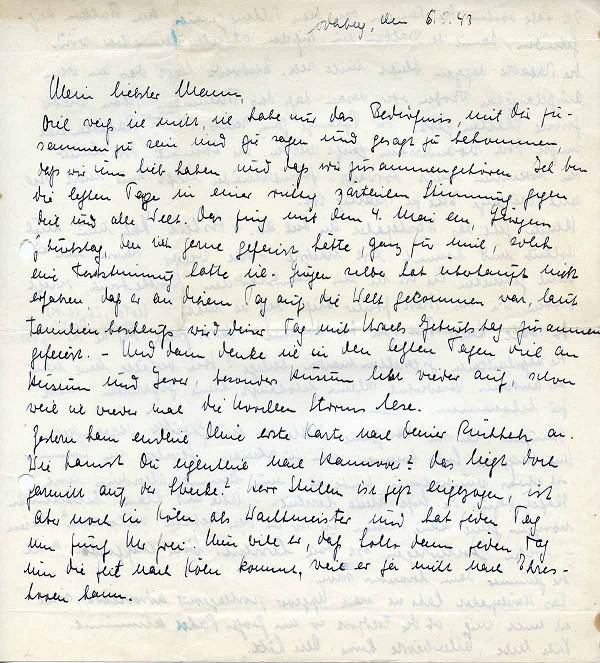 den 6.5.43
Mein liebster Mann,
weiß ich nicht, ich habe nur das Bedürfnis, mit dir zu-
sammenzu sein und dir zu sagen und gesagt zu bekommen,
daß wir uns lieb haben, und daß wir zusammengehören. Ich bin
die letzten Tage in einer richtig zärtlichen Stimmung gegen
dich und alle Welt. Das fing mit dem 4. Mai an, Jürgens
Geburtstag, den ich gerne gefeiert hätte, ganz für mich, solch
eine Feststimmung hatte ich. Jürgen selber hat überhaupt nicht
erfahren daß er an diesem Tag auf die Welt gekommen war, laut
Familienbeschluß wird dieser Tag mit Geburtstag zusammen
gefeiert. – Und dann denke ich in den letzten Tagen viel an
Husum und Jever, besonders Husum lebt wieder auf, schon
weil ich wieder mal die Novellen Storms lese.
Gestern kam endlich Deine erste Karte nach Deiner Rückkehr an.
Wie kamst Du eigentlich nach Hannover? Das liegt doch
garnicht auf der Strecke? Herr ist jetzt eingezogen, ist
aber noch in Köln als Wachtmeister und hat jeden Tag
um fünf Uhr frei. Nun will er, daß dann jeden Tag
um die Zeit nach Köln kommt, weil er ja nicht nach
kann.